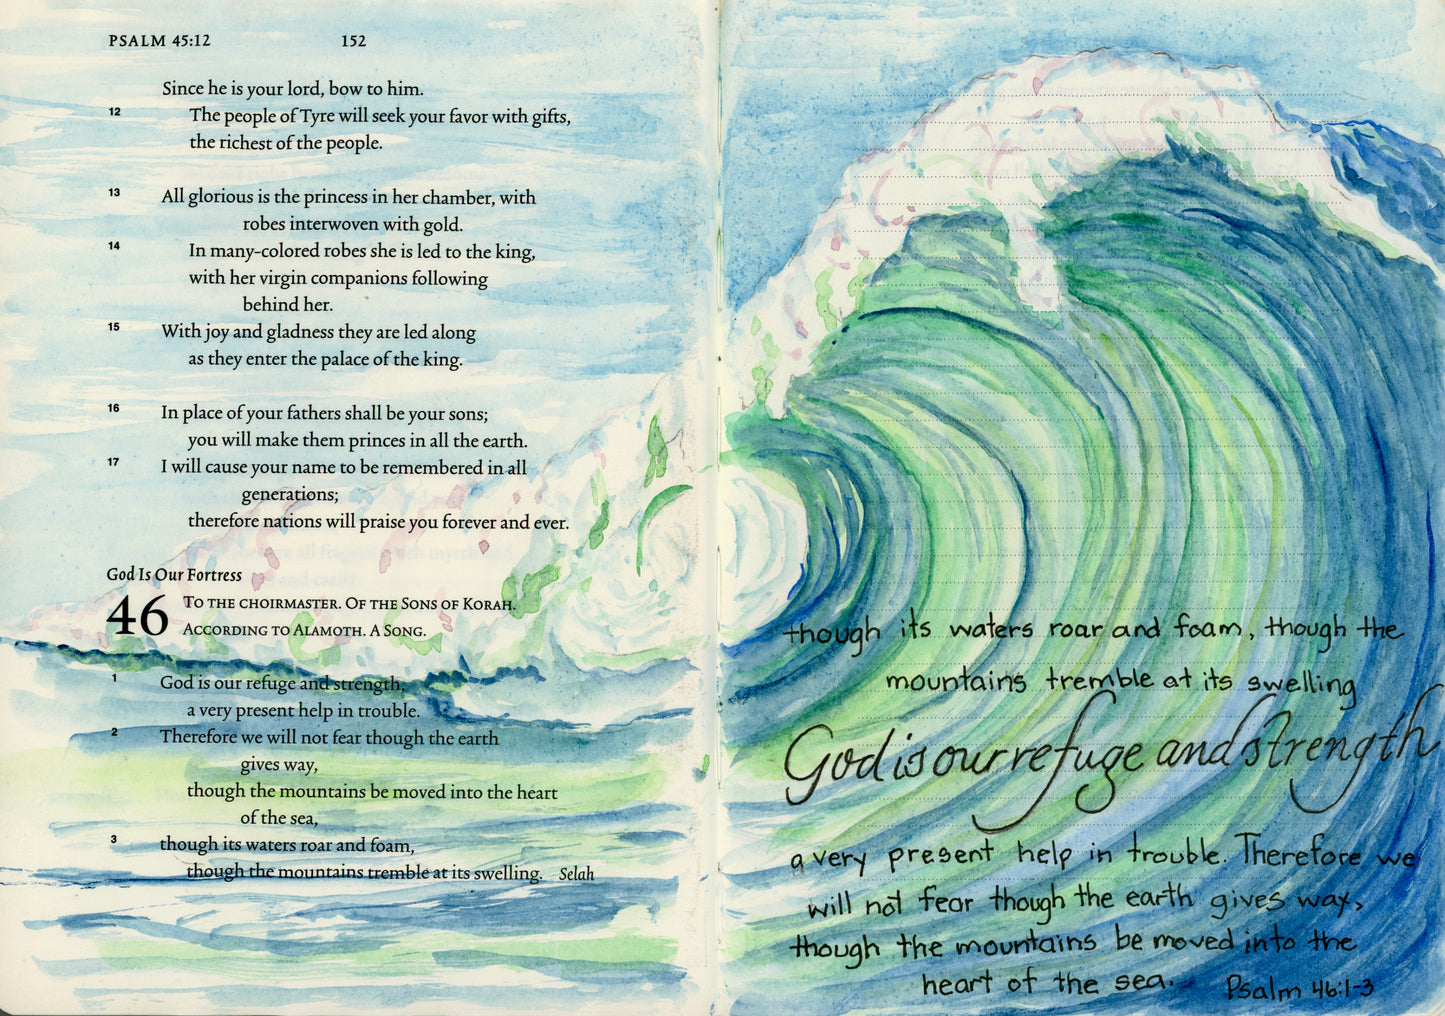 PSALM 45:12 152
Since he is your lord, bow to him.
12 The people of Tyre will seek your favor with gifts,
the richest of the people.
13 All glorious is the princess in her chamber, with
robes interwoven with gold.
14 In many-colored robes she is led to the king,
with her virgin companions following
behind her.
15 With joy and gladness they are led along
as they enter the palace of the king.
16 In place of your fathers shall be your sons;
you will make them princes in all the earth.
17 I will cause your name to be remembered in all
generations;
therefore nations will praise you forever and ever.
God Is Our Fortress
46 TO THE CHOIRMASTER. OF THE SONS OF KORAH.
ACCORDING TO ALAMOTH. A SONG.
1 God is our refuge and strength,
a very present help in trouble.
2 Therefore we will not fear though the earth
gives way,
though the mountains be moved into the heart
of the sea,
3 though its waters roar and foam,
though the mountains tremble at its swelling. Selah
though its waters roar and foam, though the
mountains tremble at its swelling
God is our refuge and strength
a very present help in trouble. Therefore we
will not fear though the earth gives way,
though the mountains be moved into the
heart of the sea.
Psalm 46:1-3